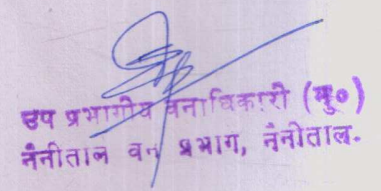 उप प्रभागीय वनाधिकारी (मु०)
नैनीताल वन प्रभाग, नैनीताल.